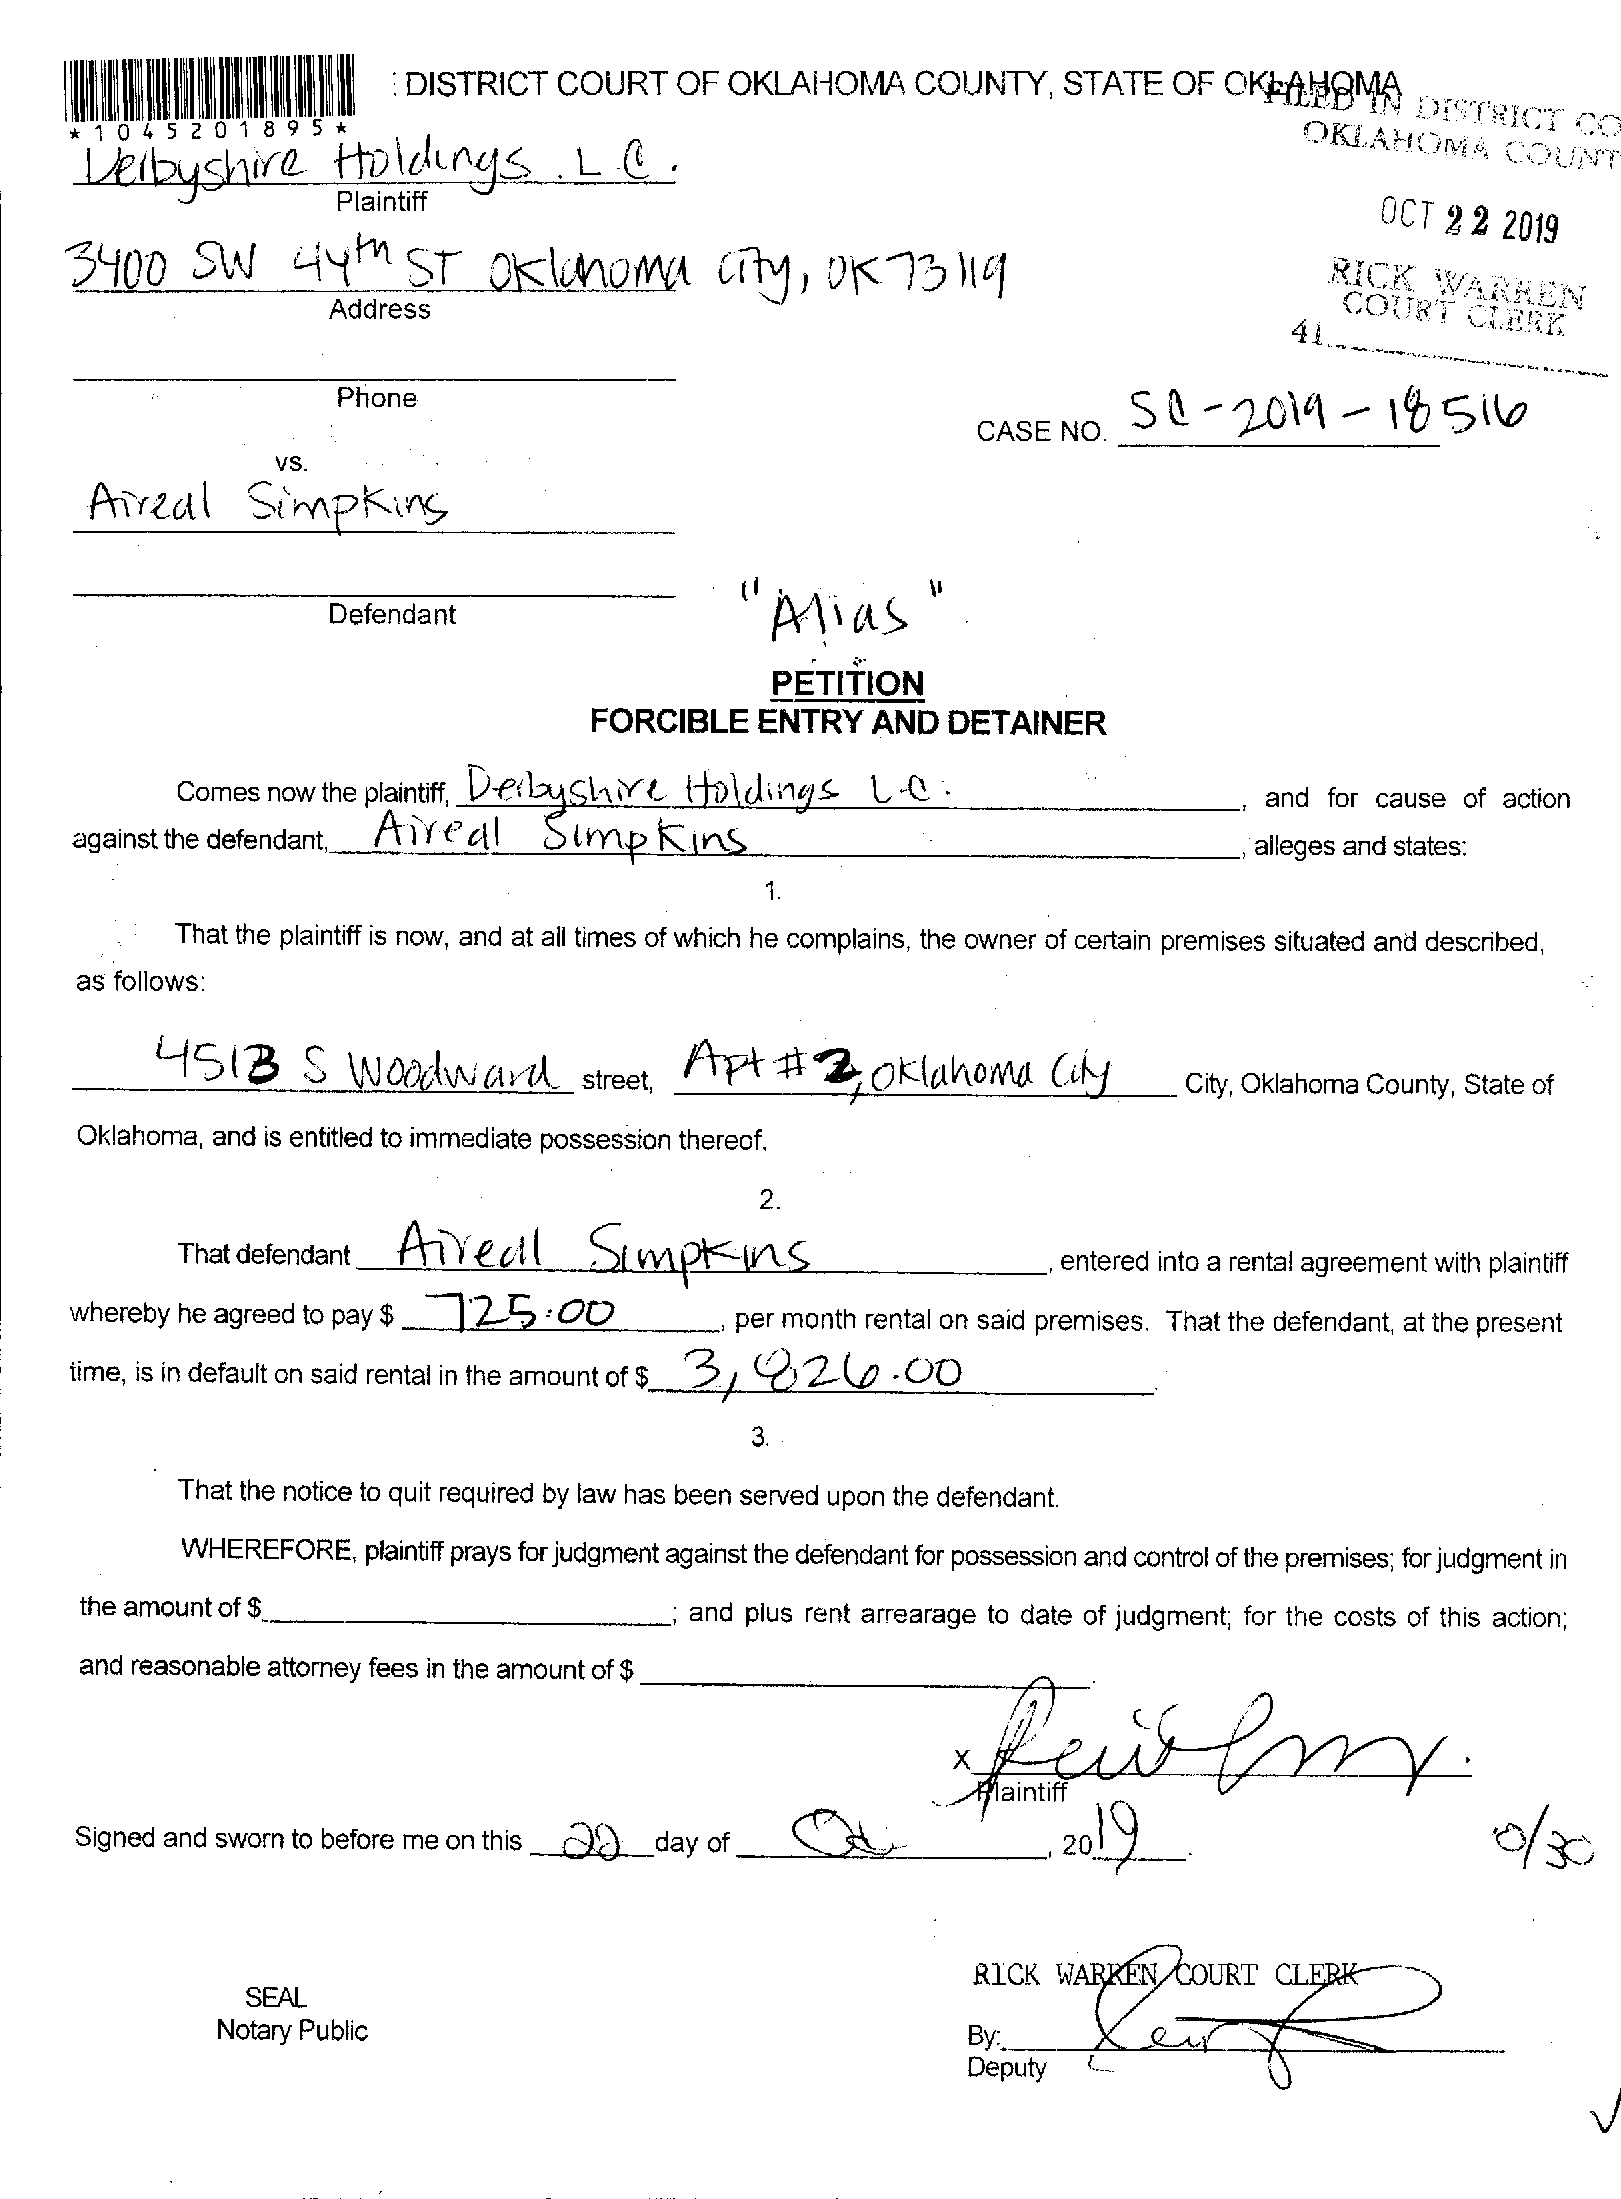 : DISTRICT COURT OF OKLAHOMA COUNTY, STATE OF OKLAHOMA
*1045201895*
FILED IN DISTRICT CO
OKLAHOMA COUNT
Derbyshire Holdings L.C.
Plaintiff
OCT 22 2019
3400 SW 44th ST Oklahoma City, OK 73119
Address
RICK WARREN
COURT CLERK
41
Phone
CASE NO. SC-2019-18516
vs.
Aireal Simpkins
Defendant
"Alias"
PETITION
FORCIBLE ENTRY AND DETAINER
Comes now the plaintiff, Derbyshire Holdings L.C. , and for cause of action
against the defendant, Aireal Simpkins , alleges and states:
1.
That the plaintiff is now, and at all times of which he complains, the owner of certain premises situated and described,
as follows:
4513 S Woodward street, Apt #2, Oklahoma City City, Oklahoma County, State of
Oklahoma, and is entitled to immediate possession thereof.
2.
That defendant Aireal Simpkins , entered into a rental agreement with plaintiff
whereby he agreed to pay $ 725.00 , per month rental on said premises. That the defendant, at the present
time, is in default on said rental in the amount of $
3.
That the notice to quit required by law has been served upon the defendant.
WHEREFORE, plaintiff prays for judgment against the defendant for possession and control of the premises; for judgment in
the amount of $ ; and plus rent arrearage to date of judgment; for the costs of this action;
and reasonable attorney fees in the amount of $
x
Plaintiff
Signed and sworn to before me on this 22 day of Oct , 2019
10/30
RICK WARREN COURT CLERK
SEAL
Notary Public
By:
Deputy